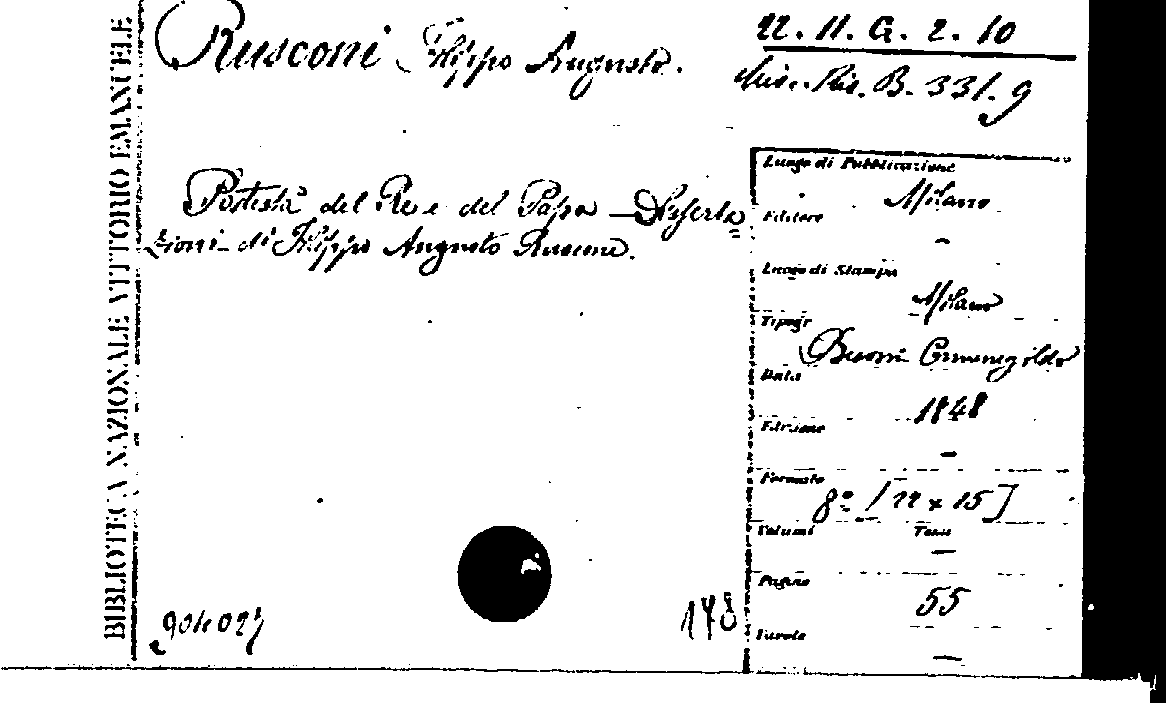 BIBLIOTECA NAZIONALE VITTORIO EMANUELE
Rusconi Filippo Augusto.
22. 11. G. 2. 10
Mis. Ris. B. 331. 9
Potestà del Re e del Papa — Disserta=
zioni di Filippo Augusto Rusconi.
Luogo di Pubblicazione
Milano
Editore
—
Luogo di Stampa
Milano
Tipogr
Data
1848
Edizione
—
Formato
8º [22 x 15]
Volumi Tomi
—
Pagine
55
Tavole
—
904027
178